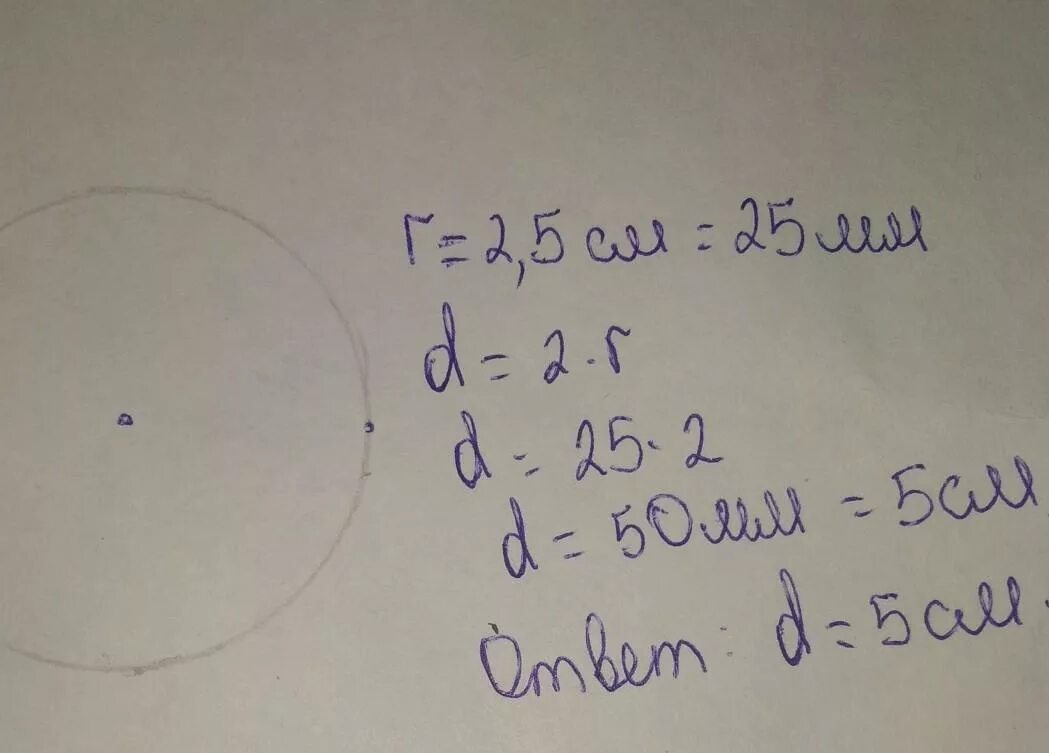 r = 2,5 см = 25 мм
d = 2 · r
d = 25 · 2
d = 50 мм = 5 см
Ответ: d = 5 см.